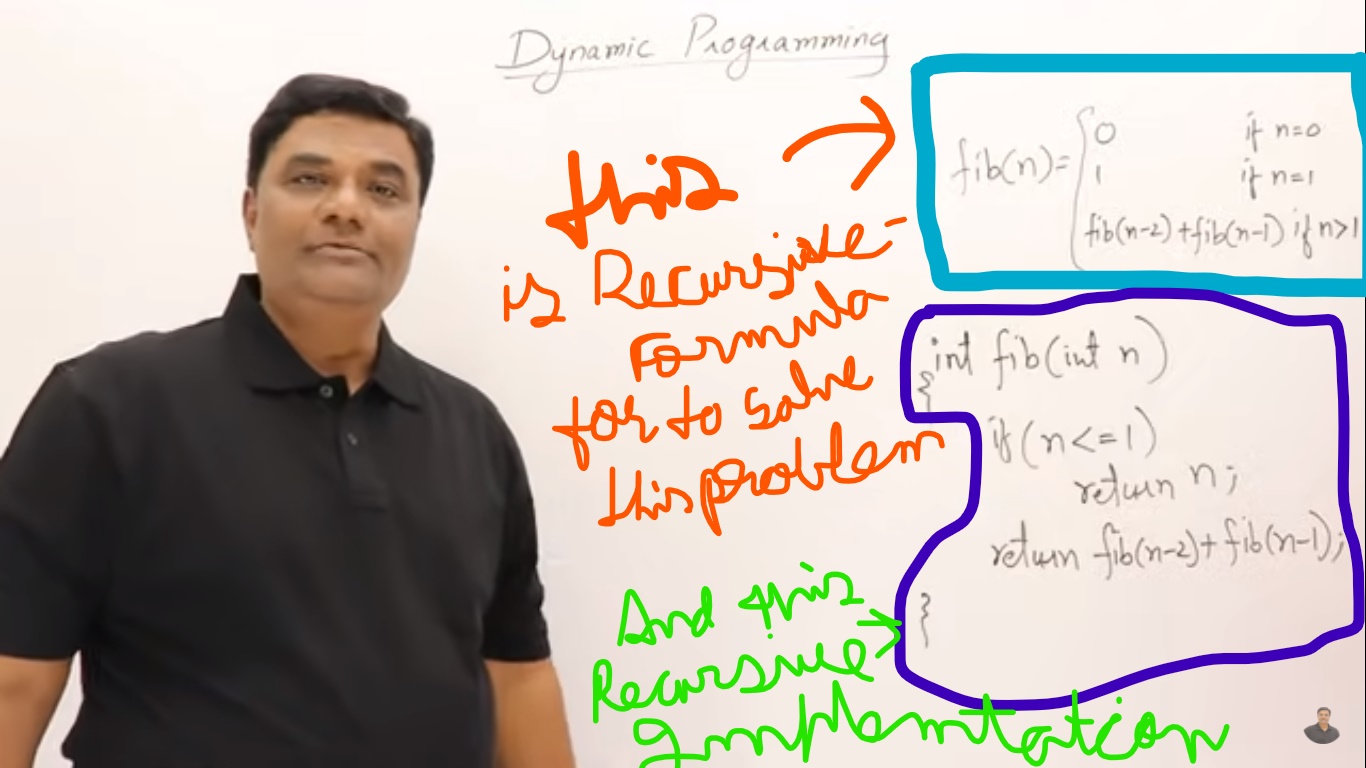 Dynamic Programming
this
is Recursive
Formula
for to Solve
this problem
fib(n)= { 0 if n=0
1 if n=1
fib(n-2)+fib(n-1) if n>1
int fib(int n)
{
if(n<=1)
return n;
return fib(n-2)+fib(n-1);
}
And this
Recursive
Implemtation